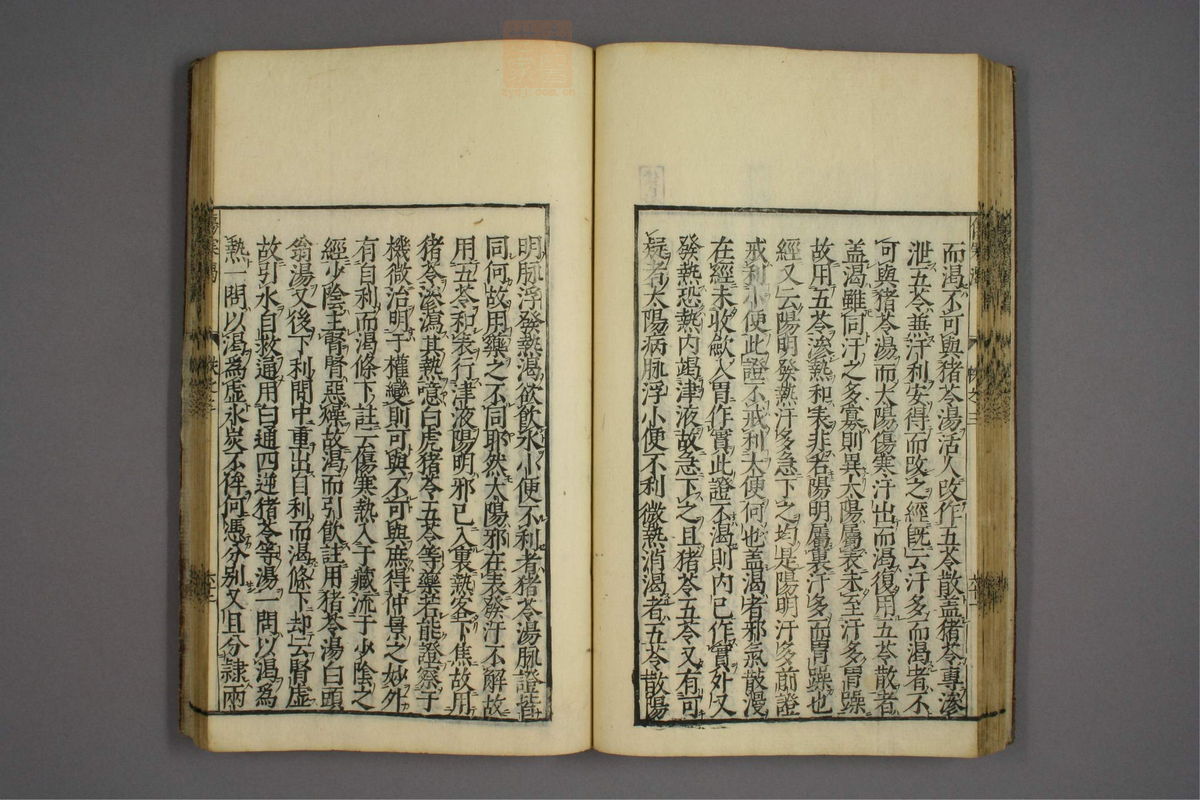 而渴不可與猪苓湯活人改作五苓散盖猪苓專滲
泄五苓兼汗利安得而改之經既云汗多而渴者不
可與猪苓湯而太陽傷寒汗出而渴復用五苓散者
盖渴雖同汗之多寡則異太陽屬表未至汗多胃躁
故用五苓滲熱和表非若陽明屬裏汗多而胃躁也
經又云陽明發熱汗多急下之均是陽明汗多前證
戒利小便此證不戒利大便何也盖渴者邪氣散漫
在經未收歛入胃作實此證不渴則内已作實外又
發熱恐熱内竭津液故急下之且猪苓五苓又有可
疑者太陽病脉浮小便不利微熱消渴者五苓散陽
明脉浮發熱渴欲飲水小便不利者猪苓湯脉證皆
同何故用藥之不同耶然太陽邪在表發汗不解故
用五苓和表行津液陽明邪已入裏熱客下焦故用
猪苓滲瀉其熱意白虎猪苓五苓等藥若能證察于
機微治明于權變則可與不可與庶得仲景之妙外
有自利而渴條下註云傷寒熱入于藏流于少陰之
經少陰主腎腎惡燥故渴而引飲註用猪苓湯白頭
翁湯又後下利問中重出自利而渴條下却云腎虚
故引水自救通用白通四逆猪苓等湯一問以渴爲
熱一問以渴爲虚氷炭不侔何憑分别又且分隷兩